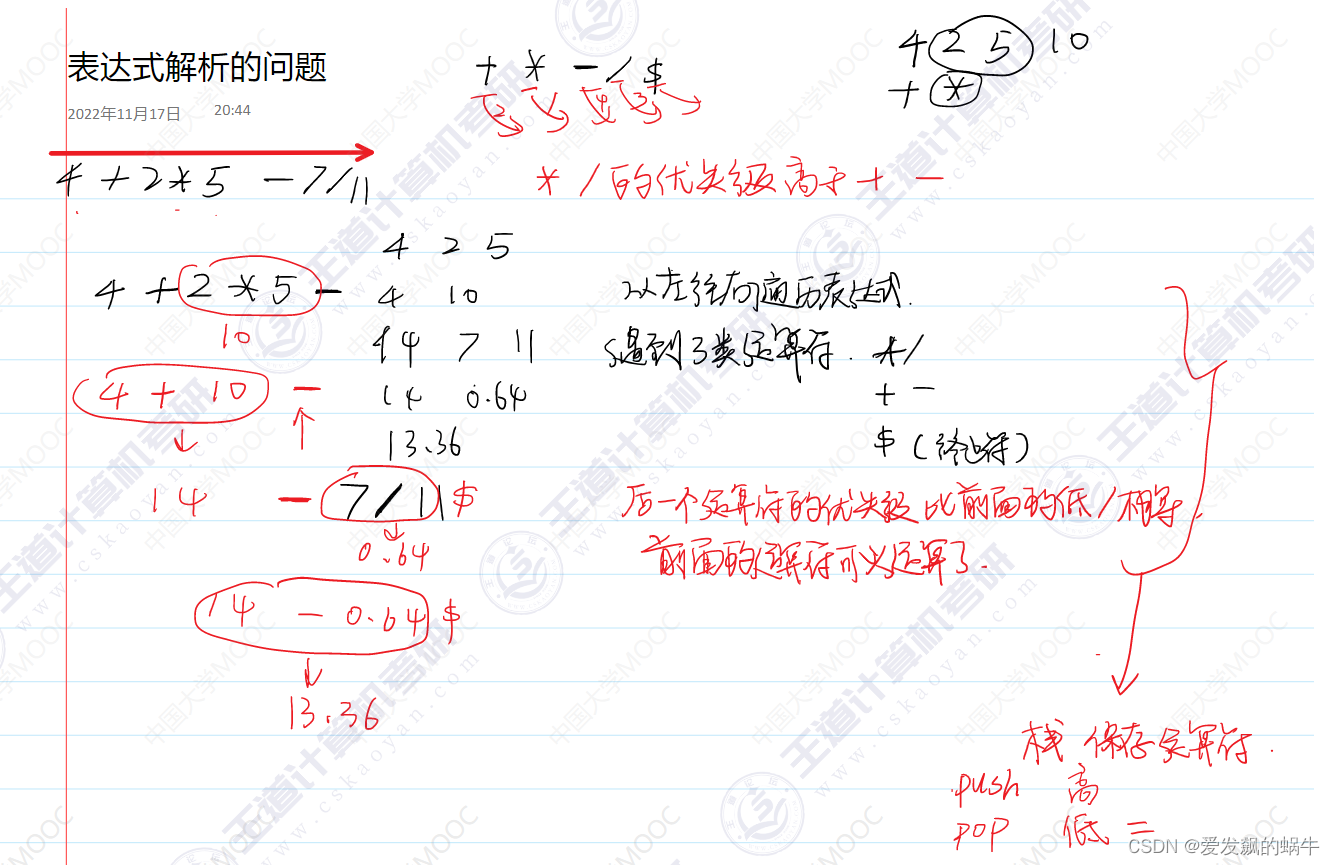 表达式解析的问题
2022年11月17日 20:44
+ * - / $
4 2 5 10
+ *
4 + 2 * 5 - 7 / 11
* / 的优先级高于 + -
4 2 5
4 + 2 * 5 -
4 10
从左往右遍历表达式.
10
14 7 11
遇到3类运算符. * /
4 + 10 -
14 0.64
+ -
13.36
$ (终止符)
14 - 7 / 11 $
后一个运算符的优先级 比前面的低 / 相等.
0.64
前面的运算符可以运算了.
14 - 0.64 $
13.36
栈 保存运算符.
push 高
pop 低 =
CSDN @爱发飙的蜗牛
王道计算机考研
www.cskaoyan.com
中国大学MOOC